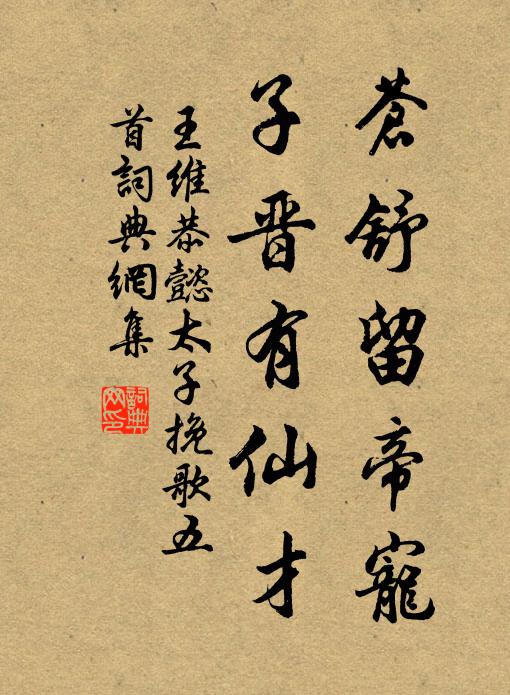 蒼舒留帝寵
子晋有仙才
王維恭懿太子挽歌五
首詞典網集
詞典网印